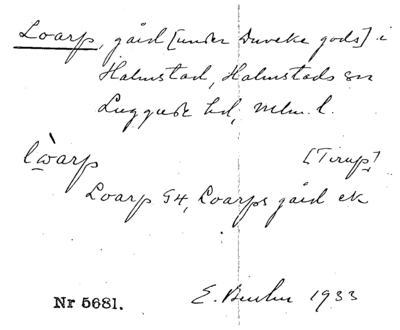 Loarp, gård [under Duveke gods] i
Halmstad, Halmstads sn
Luggude hd, Mlm. l.
lẁarp [Tirup]
Loarp G4, Loarps gård ek
Nr 5681. E. 1933